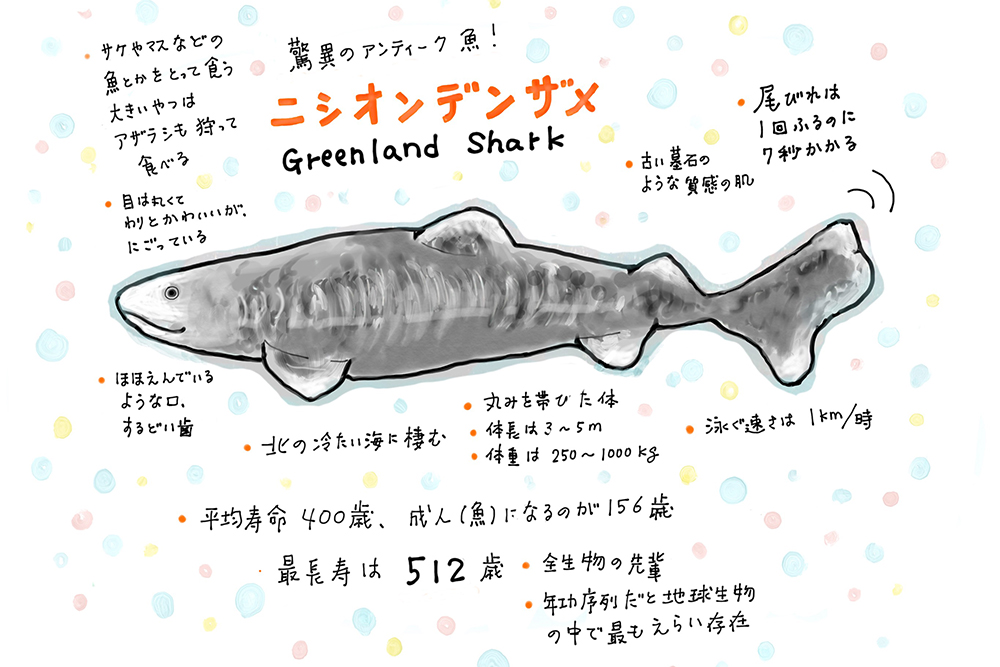 驚異のアンティーク魚！
ニシオンデンザメ
Greenland Shark
サケやマスなどの
魚とかをとって食う
大きいやつは
アザラシも狩って
食べる
目は丸くて
わりとかわいいが、
にごっている
古い墓石の
ような質感の肌
尾びれは
1回ふるのに
7秒かかる
ほほえんでいる
ような口、
するどい歯
北の冷たい海に棲む
丸みを帯びた体
体長は3〜5m
体重は250〜1000kg
泳ぐ速さは1km/時
平均寿命400歳、成人(魚)になるのが156歳
最長寿は512歳
全生物の先輩
年功序列だと地球生物
の中で最もえらい存在